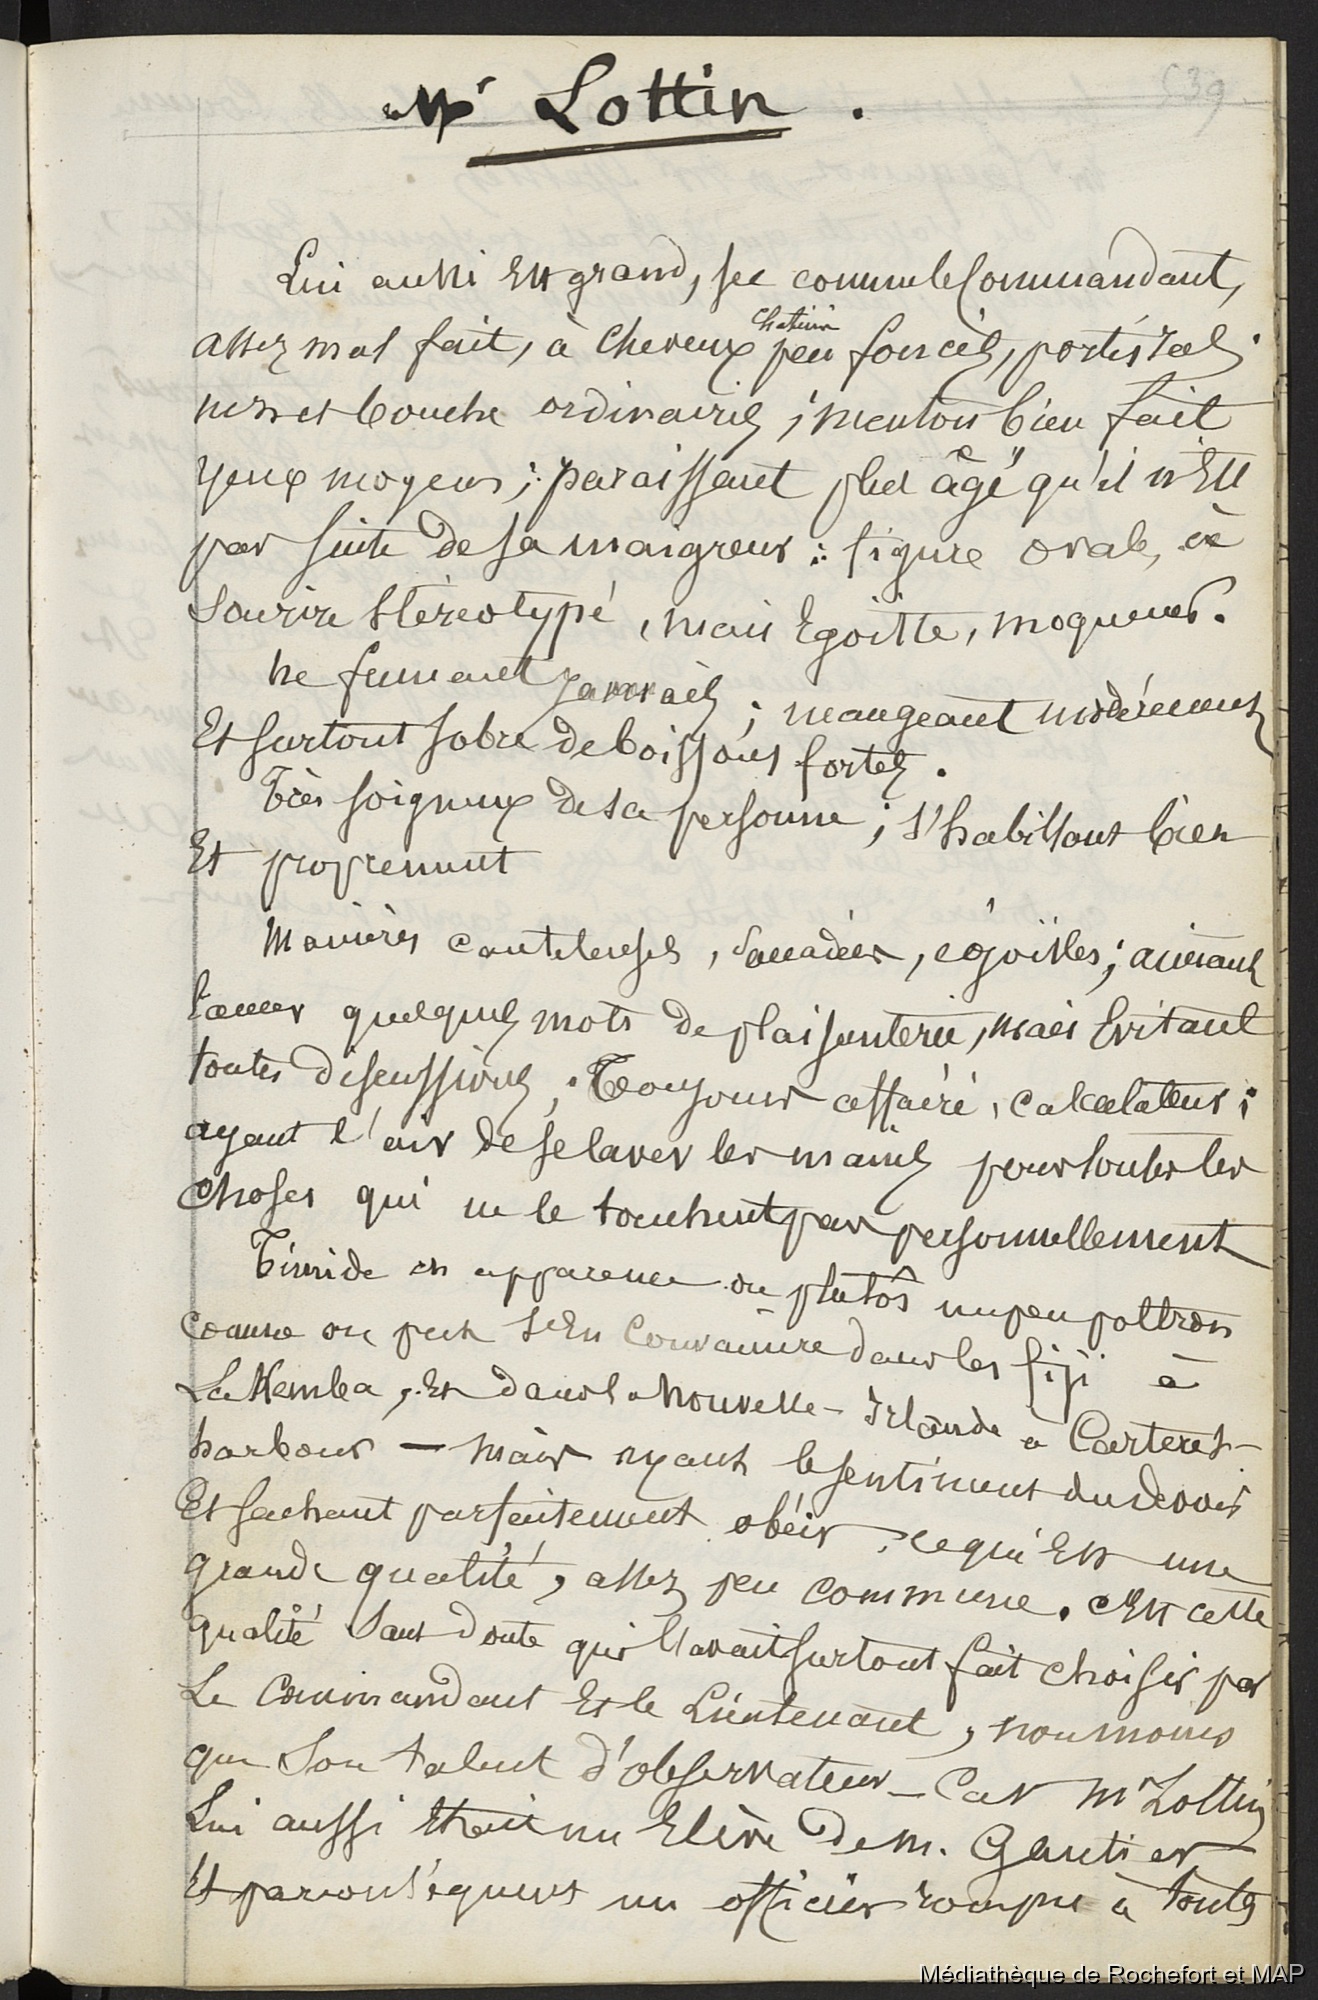 539
Mr Lottin.
Lui aussi est grand, sec comme le Commandant,
assez mal fait, à cheveux chatain peu foncés, portés ras;
nez et bouche ordinaires; menton bien fait
yeux moyens; paraissant plus âgé qu'il n'est
par suite de sa maigreur: figure ovale, à
sourire stéréotypé, mais Egoïste, moqueur.
ne fumant jamais; mangeant modérément
Et surtout sobre de boissons fortes.
Très soigneux de sa personne; s'habillant bien
Et proprement
Manières cauteleuses, saccadées, egoïstes; aimant
lancer quelques mots de plaisanterie, mais Evitant
toutes discussions; Toujours affairé, calculateur;
ayant l'air de se laver les mains pour toutes les
choses qui ne le touchent pas personnellement
Timide en apparence ou plutôt un peu poltron
comme on put s'En convaincre dans les fiji à
LaKemba, Et dans la Nouvelle-Irlande à Carteret-
harbour — mais ayant le sentiment du devoir
Et sachant parfaitement obéir, ce qui Est une
grande qualité, assez peu commune. c'Est cette
qualité sans doute qui l'avait surtout fait choisir par
Le Commandant Et le Lieutenant, non moins
que son talent d'observateur — Car Mr Lottin
Lui aussi Etait un Elève de M. Gautier
Et par conséquent un officier rompu à toutes
Médiathèque de Rochefort et MAP